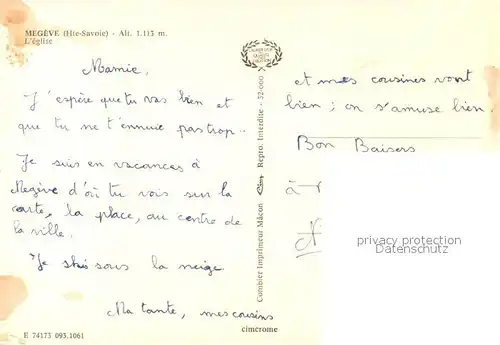 MEGÈVE (Hte-Savoie) - Alt. 1.113 m.
L'église
Mamie,
J'espère que tu vas bien et
que tu ne t'ennuie pas trop..
Je suis en vacances à
Megève d'où tu vois sur la
carte, la place, au centre de
la ville.
Je skis sous la neige
Ma tante, mes cousins
et mes cousines vont
bien ; on s'amuse bien
Bon Baisers
à
Combier Imprimeur Mâcon Cim Repro. Interdite - 32-000
E 74173 093.1061
cimcrome
privacy protection
Datenschutz